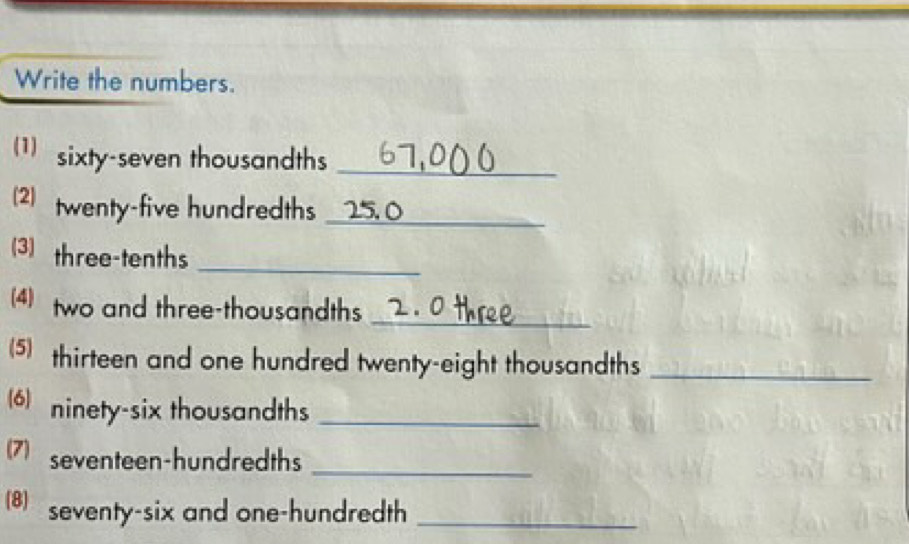 Write the numbers.
(1) sixty-seven thousandths 67,000
(2) twenty-five hundredths 25.0
(3) three-tenths
(4) two and three-thousandths 2.0 three
(5) thirteen and one hundred twenty-eight thousandths
(6) ninety-six thousandths
(7) seventeen-hundredths
(8) seventy-six and one-hundredth